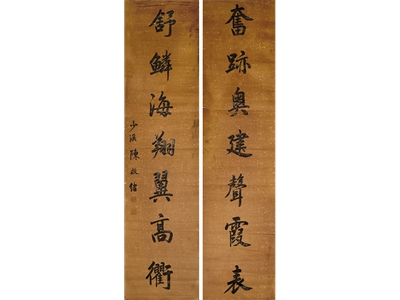 奮跡奧建聲霞表
舒鱗海翔翼高衢
少溪陳